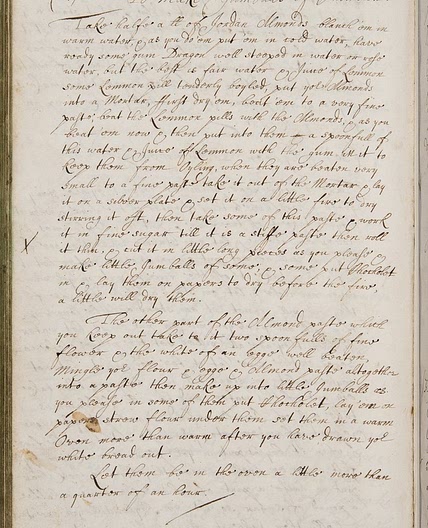 To make Jumballs of
Take halfe a tt of Jordan Almonds blanch om in
warm water, & as you do om put om in cold water, have
ready some gum Dragon well steeped in water or rose
water, but the best is fair water & Juice of Lemmon
some Lemmon pill tenderly boyled, put yor Almonds
into a Mortar, ffirst dry om, beat om to a very fine
paste, beat the Lemmon pills with the Almonds, & as you
beat om now & then put into them a spoonfull of
this water & Juice of Lemmon with the gum in it to
keep them from Oyling, when they are beaten very
small to a fine paste take it out of the Mortar & lay
it on a silver plate & set it on a little fire to dry
stirring it oft, then take some of this paste & work
it in fine sugar till it is a stiffe paste then roll
it thin & cut it in little long pieces as you please &
make little Jumballs of some, & some put Chocholet
in & lay them on papers to dry before the fire,
a little will dry them.
The other part of the Almond paste which
you keep out take to it two spoonfulls of fine
flower & the white of an egge well beaten,
Mingle yor flour & egge & Almond paste altogether
into a paste then make up into little Jumballs as
you please in some of them put Chocholet, lay om on
papers, strew flour under them set them in a warm
Oven more than warm after you have drawn yor
white bread out.
Let them be in the oven a little more than
a quarter of an hour.